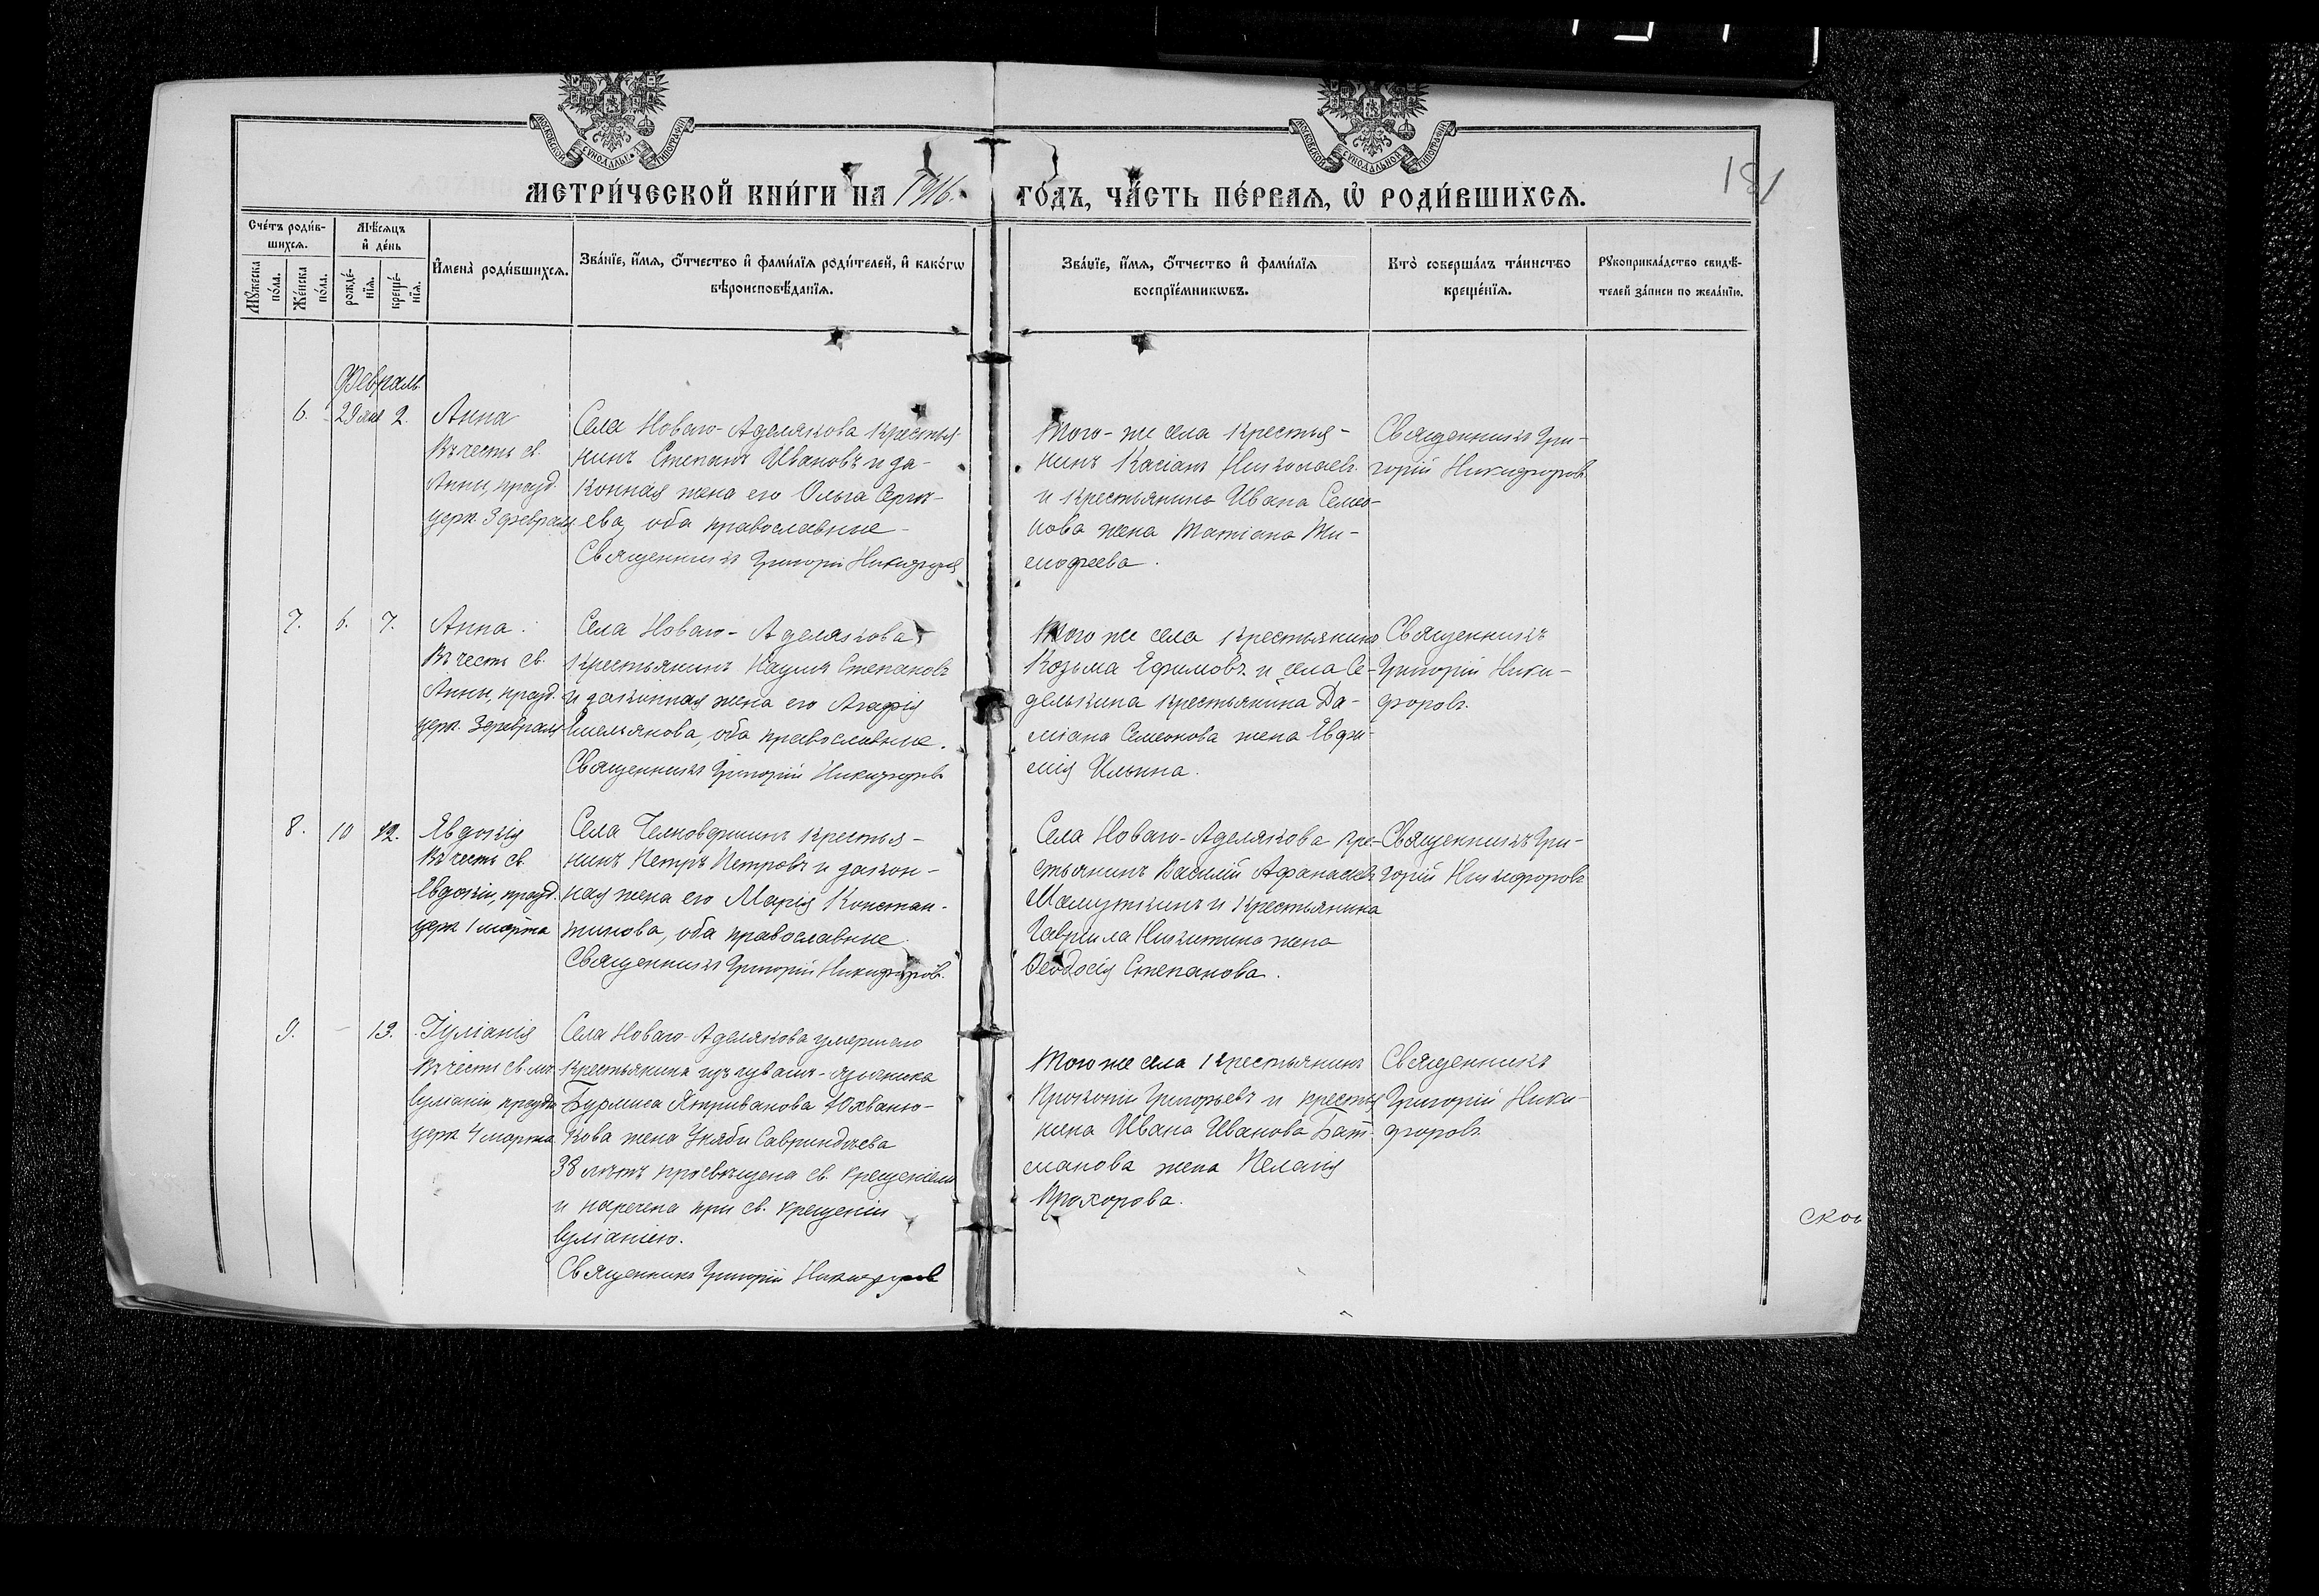 МОСКОВСКОЙ СѴНОДАЛЬН. ТИПОГРАФІИ
МОСКОВСКОЙ СѴНОДАЛЬНОЙ ТИПОГРАФІИ
181
МЕТРИ́ЧЕСКОЙ КНИ́ГИ НА 1916.
ГО́ДЪ, ЧА́СТЬ ПЕ́РВАѦ, Ѽ РОДИ́ВШИХСѦ.
Сче́тъ роди́в-
шихсѧ.
Мѣ́сѧцъ
и҆ де́нь
Мꙋ́жеска по́ла.
Же́нска по́ла.
рожде́-нїѧ.
креще́-нїѧ.
И҆мена̀ роди́вшихсѧ.
Зва́нїе, и҆́мѧ, ѻ҆́тчество и҆ фами́лїѧ роди́телей, и҆ како́гѡ
вѣроисповѣ́данїѧ.
Зва́нїе, и҆́мѧ, ѻ҆́тчество и҆ фами́лїѧ
воспрїе́мникѡвъ.
Кто̀ соверша́лъ та́инство
креще́нїѧ.
Рꙋкоприкла́дство свидѣ́-
телей за́писи по жела́нїю.
Февраль
6. 29 2.
Анна
Въ честь св.
Анны, празд.
церк. 3 февраля
Села Новаго-Аделякова крестья-
нинъ Степанъ Ивановъ и за-
конная жена его Ольга Серги-
ева, оба православные
Священникъ Григорій Никифоровъ
Того-же села крестья-
нинъ Касіанъ Николаевъ
и крестьянина Ивана Семе-
нова жена Татіана Ти-
мофеева.
Священникъ Гри-
горій Никифоровъ
7. 6. 7.
Анна.
Въ честь св.
Анны, празд.
церк. 3 февраля
Села Новаго-Аделякова
крестьянинъ Наумъ Степановъ
и законная жена его Агафія
Емельянова, оба православные.
Священникъ Григорій Никифоровъ
Того же села крестьянинъ
Козьма Ефимовъ и села Се-
делькина крестьянина Да-
міана Семенова жена Евфи-
мія Ильина.
Священникъ
Григорій Ники-
форовъ.
8. 10 12.
Евдокія
Въ честь св.
Евдокіи, празд.
церк. 1 марта
Села Челновершинъ крестья-
нинъ Петръ Петровъ и закон-
ная жена его Марія Констан-
тинова, оба православные.
Священникъ Григорій Никифоровъ.
Села Новаго-Аделякова кре-
стьянинъ Василій Афанасьевъ
и крестьянина
Гавриила Никитина жена
Ѳеодосія Степанова.
Священникъ Гри-
горій Никифоровъ
9. – 13.
Іуліанія
Въ честь св. мч.
Іуліаніи праздн.
церк. 4 марта
Села Новаго-Аделякова умершаго
крестьянина изъ чувашъ-язычника
Бурмиса Ятриванова
кова жена Савриндяева
38 лѣтъ просвѣщена св. крещеніемъ
и наречена при св. крещеніи
Іуліаніею.
Священникъ Григорій Никифоровъ
Того же села крестьянинъ
Прокопій Григорьевъ и крестья-
нина Ивана Иванова Бат-
манова жена Пелагія
Прохорова.
Священникъ
Григорій Ники-
форовъ.
ской